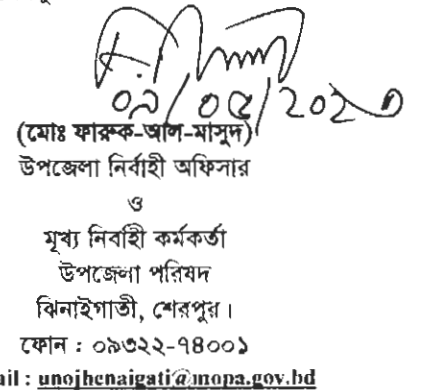 ০৯/০৫/২০২৩
(মোঃ ফারুক-আল-মাসুদ)
উপজেলা নির্বাহী অফিসার
ও
মূখ্য নির্বাহী কর্মকর্তা
উপজেলা পরিষদ
ঝিনাইগাতী, শেরপুর।
ফোন : ০৯৩২২-৭৪০০১
ail : unojhenaigati@mopa.gov.bd